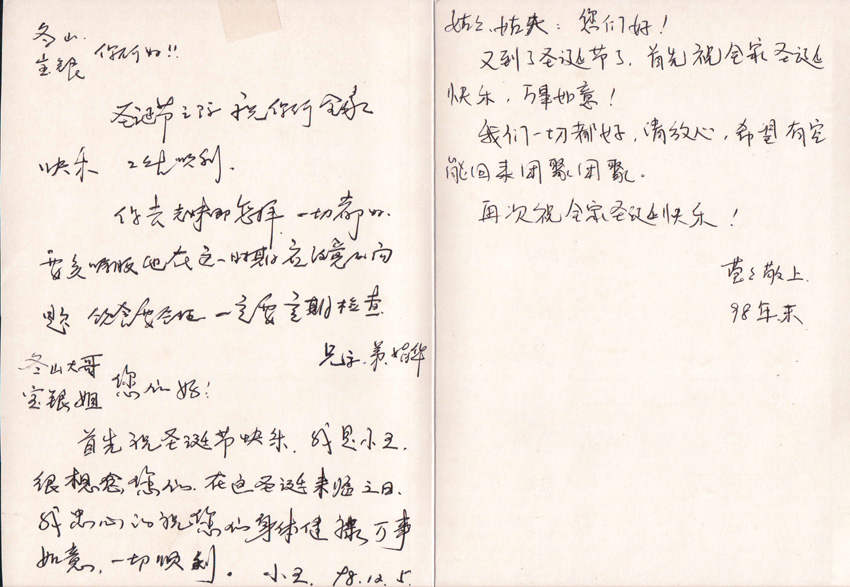 冬山.
宝银 你们好!!
圣诞节之际 祝你们全家
快乐 工作顺利.
你去 怎样 一切都好.
要多 他在这一时期 应注意的问
题 饮食要 一定要定期检查.
兄字. 弟
冬山大哥
宝银姐 您们好!
首先祝圣诞节快乐. 我是小王.
很想念您们. 在这圣诞来临之日.
我忠心的祝您们身体健康 万事
如意, 一切顺利. 小王. 98.12.5.
姑姑、姑夫: 您们好!
又到了圣诞节了, 首先祝全家圣诞
快乐, 万事如意!
我们一切都好, 请放心, 希望有空
能回来团聚团聚.
再次祝全家圣诞快乐!
敬上.
98年末